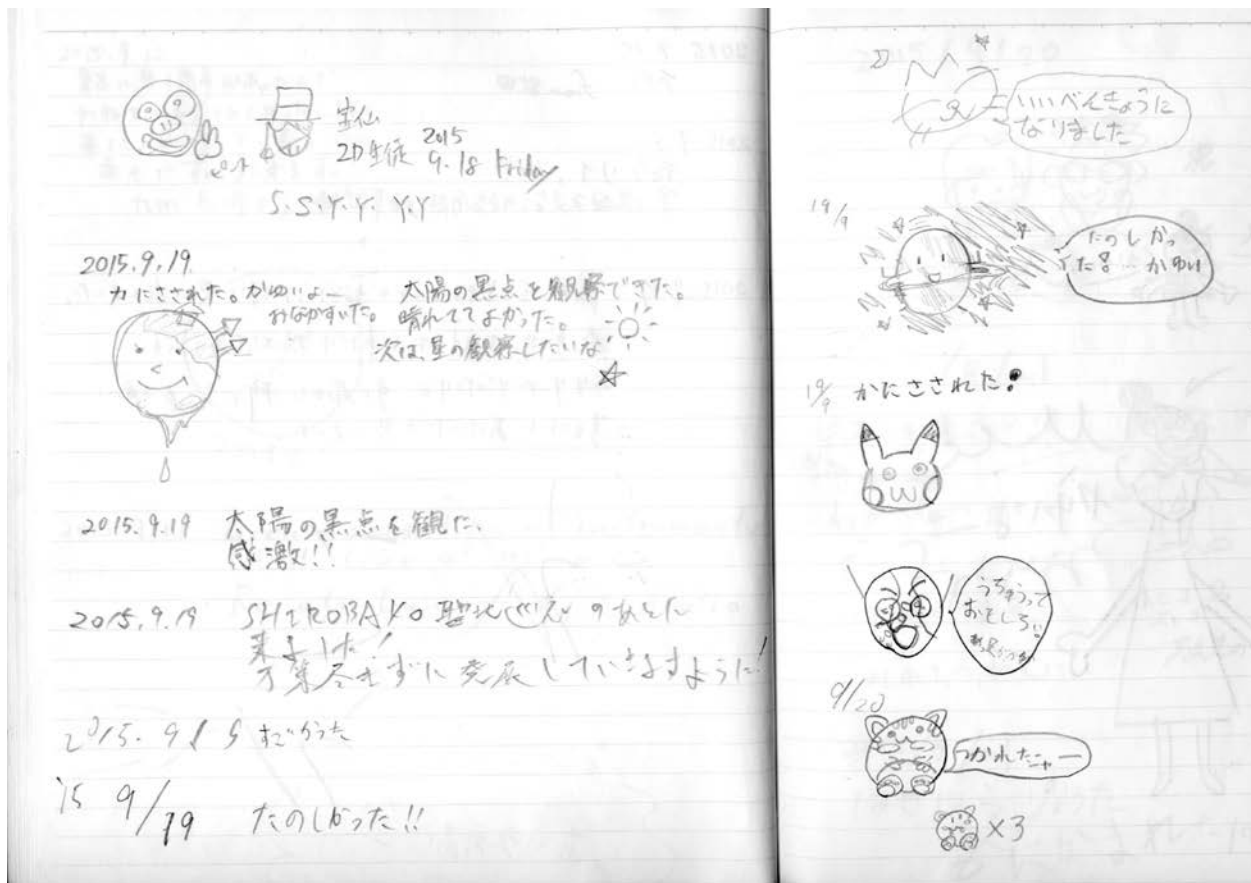 宝仙
2D生徒 2015
9.18 Friday
S.S Y.Y. Y.Y
2015.9.19
カにさされた。かゆいよー
おなかすいた。
太陽の黒点を観察できた。
晴れててよかった。
次は、星の観察したいな
2015.9.19 太陽の黒点を観た、
感激!!
2015.9.19 SHIROBAKO 聖地
来ました!
発展していきますように!
2015. 9 19 すごかった
'15 9/19 たのしかった!!
いいべんきょうに
なりました
19/9
たのしかっ
た!!…かゆい
19/9 かにさされた!
うちゅうって
おもしろい
9/20
つかれたニャー
×3